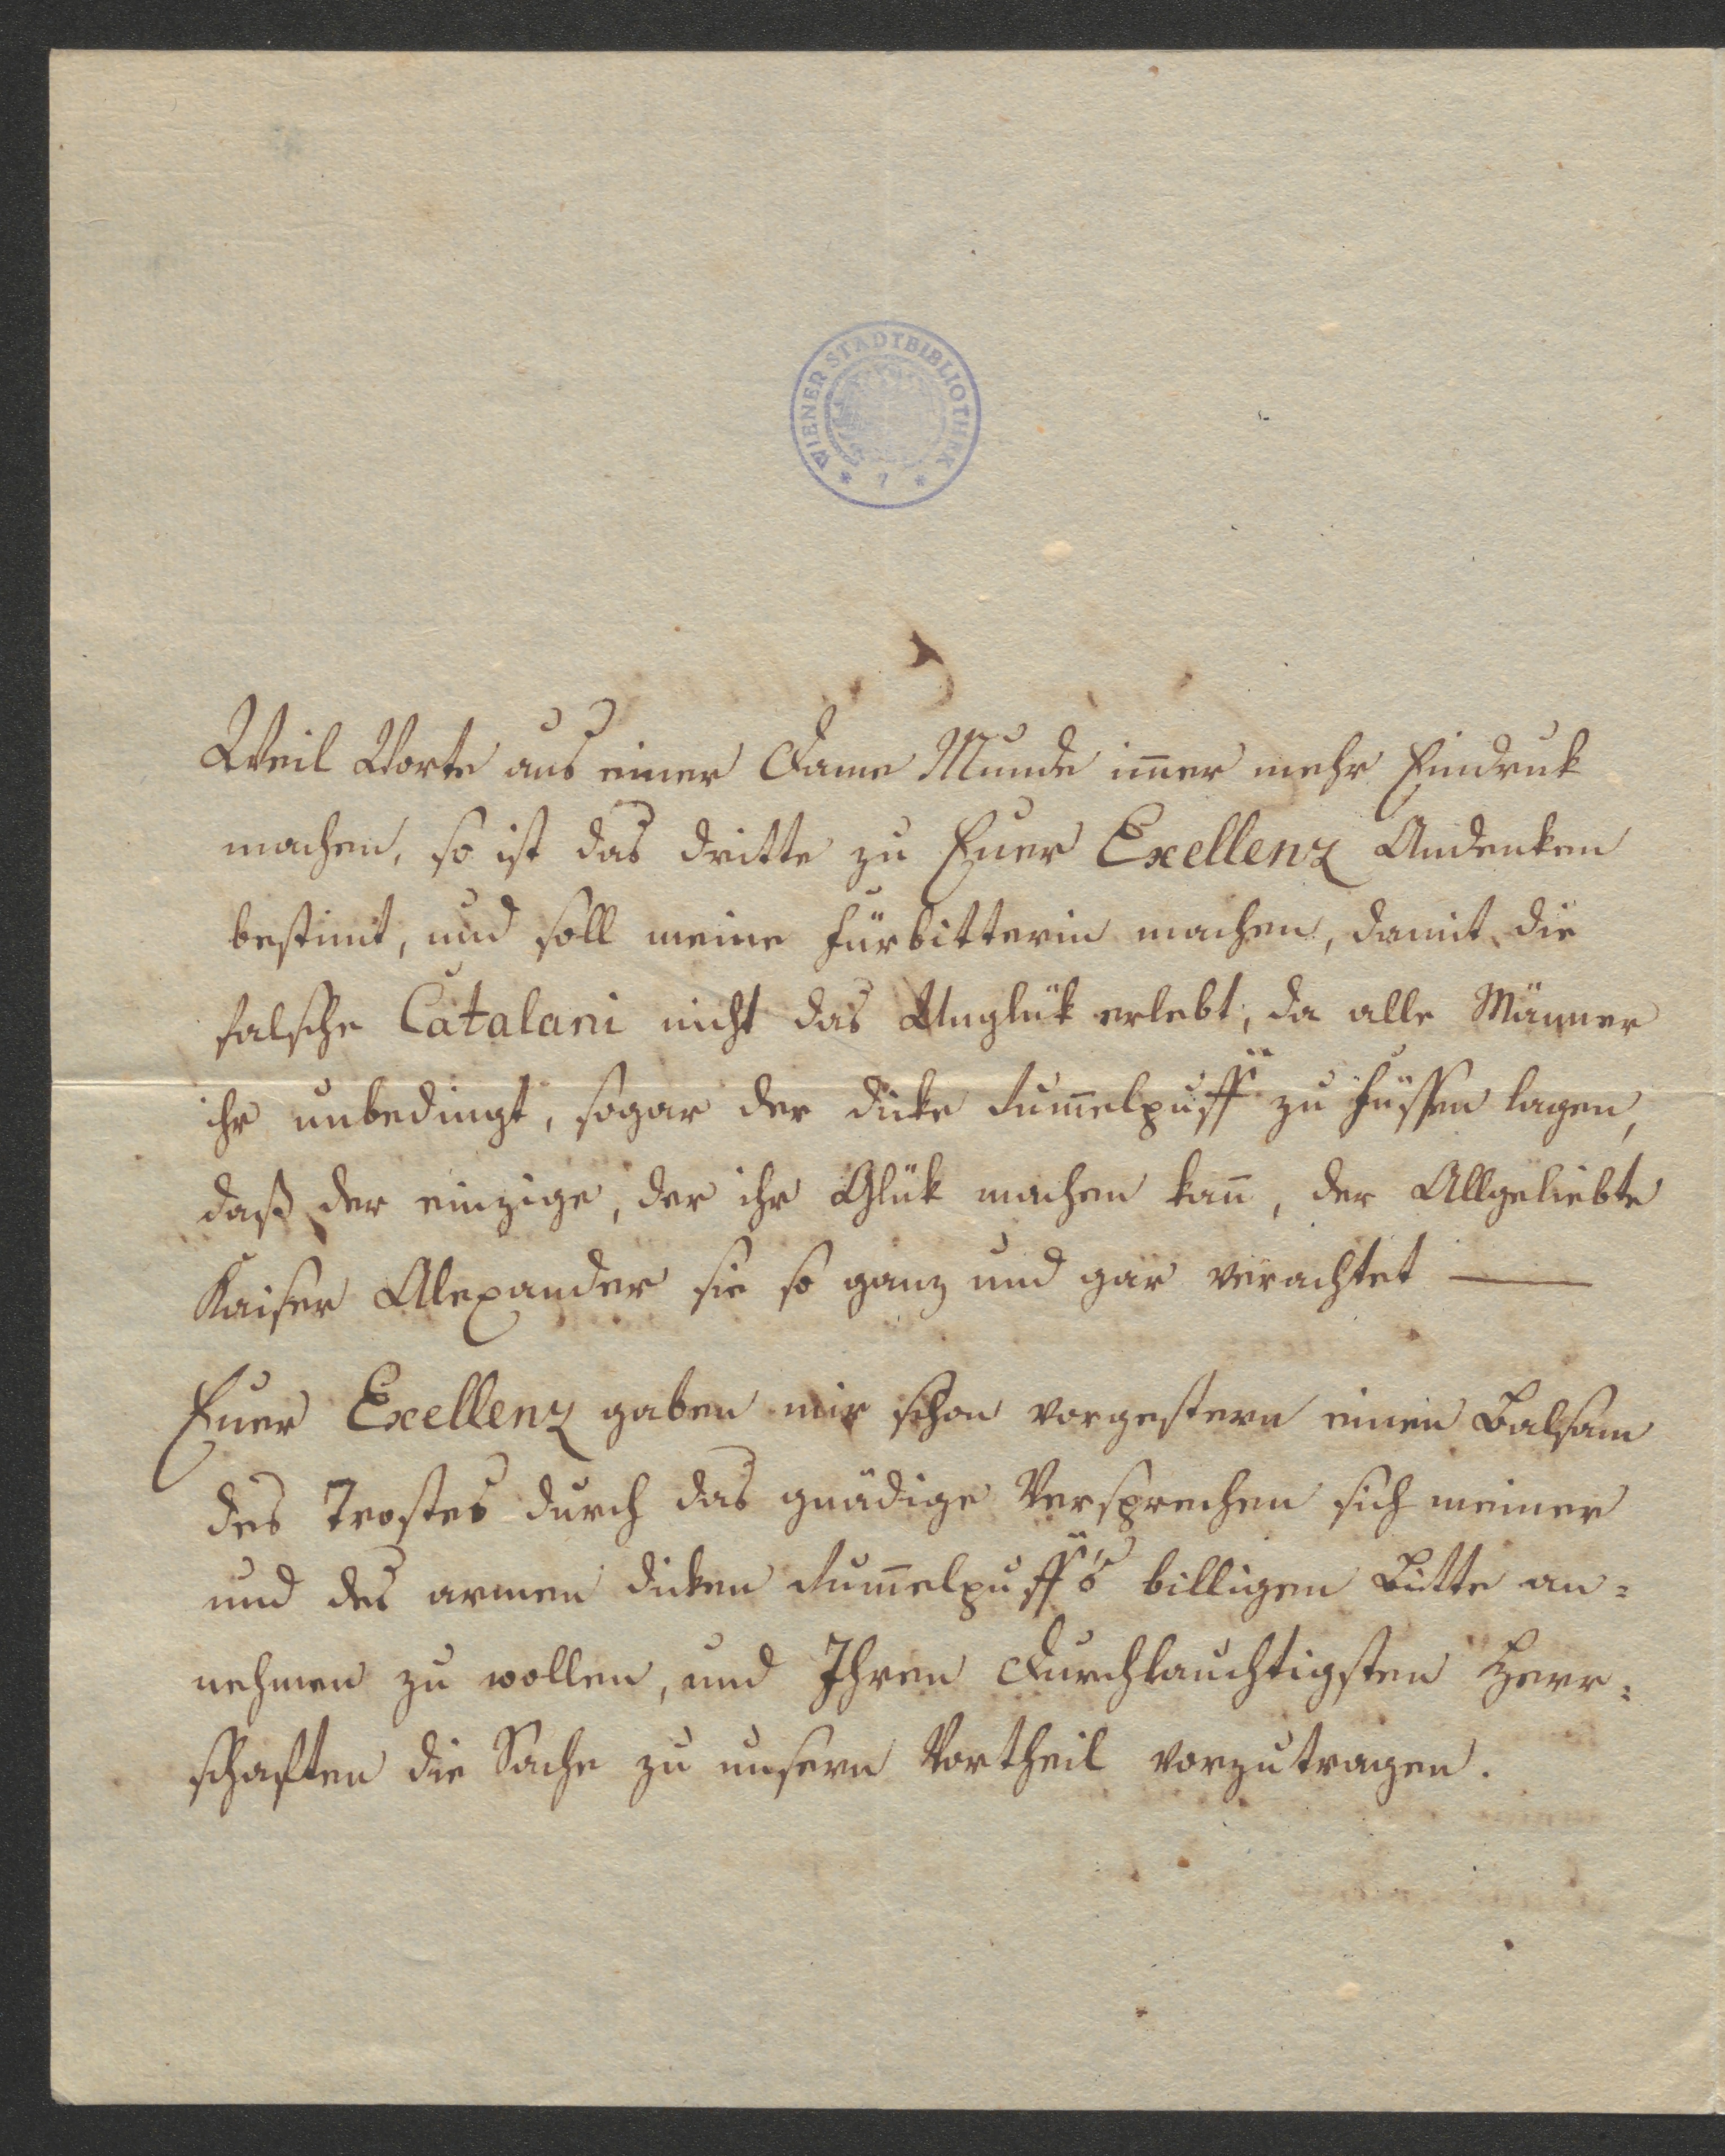 WIENER STADTBIBLIOTHEK * 7 *
Weil Worte aus einer Dame Munde im̅er mehr Eindruk
machen, so ist das dritte zu Euer Exellenz Andenken
bestim̅t, und soll meine Fürbitterin machen, damit die
falsche Catalani nicht das Unglük erlebt, da alle Männer
ihr unbedingt, sogar der dicke Rum̅elpuff zu Füssen lagen,
daß der einzige, der ihr Glük machen kan̅, der Allgeliebte
Kaiser Alexander sie so ganz und gar verachtet —
Euer Exellenz gaben mir schon vorgestern einen Balsam
des Trostes durch das gnädige Versprechen sich meiner
und des armen dicken Rum̅elpuff's billigen Bitte an=
nehmen zu wollen, und Ihren Durchlauchtigsten Herr=
schaften die Sache zu unsern Vortheil vorzutragen.